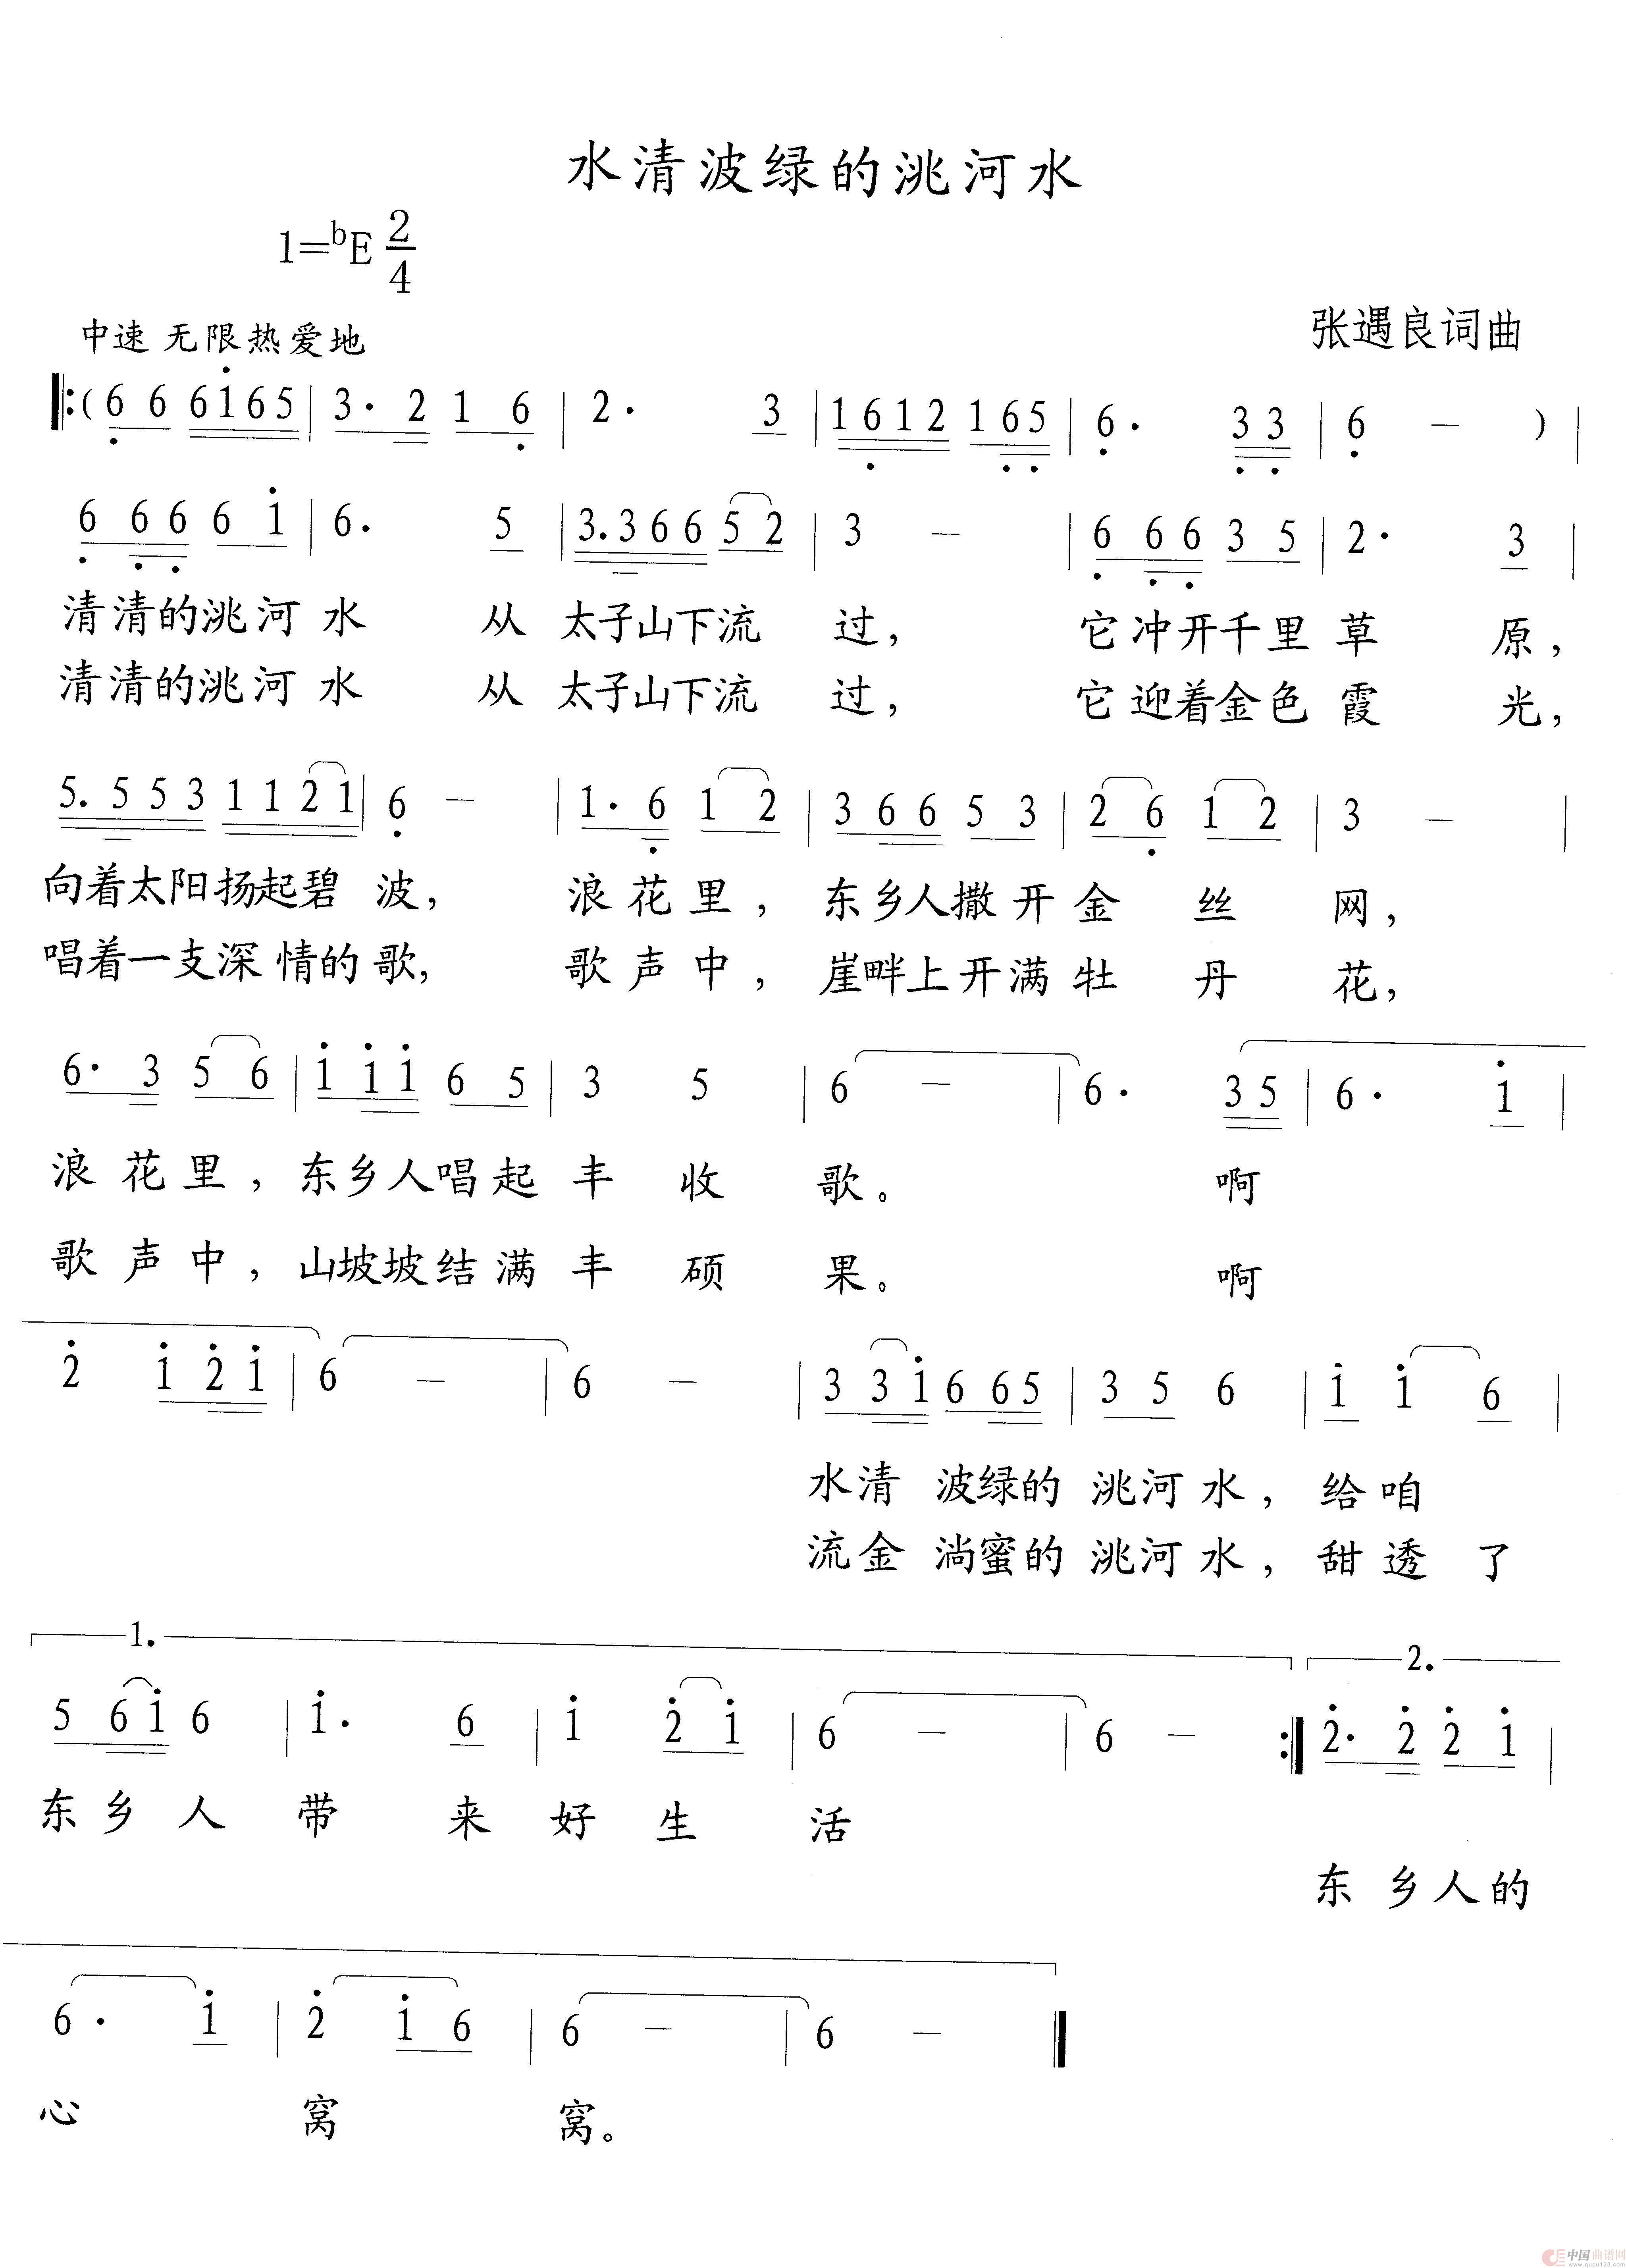 水清波绿的洮河水
1=bE 2/4
中速 无限热爱地
张遇良词曲
‖:( 6 6 6165 | 3· 2 1 6 | 2· 3 | 1612 165 | 6· 33 | 6 — ) |
6 66 6 1 | 6· 5 | 3.366 52 | 3 — | 6 66 3 5 | 2· 3 |
清清的洮河水 从 太子山下流 过， 它冲开千里草 原，
清清的洮河水 从 太子山下流 过， 它迎着金色霞 光，
5.553 1121 | 6 — | 1· 6 1 2 | 3 66 5 3 | 2 6 1 2 | 3 — |
向着太阳扬起碧 波， 浪花里，东乡人撒开金 丝 网，
唱着一支深情的歌， 歌声中，崖畔上开满牡 丹 花，
6· 3 5 6 | 1 11 6 5 | 3 5 | 6 — | 6· 35 | 6· 1 |
浪花里，东乡人唱起丰 收 歌。 啊
歌声中，山坡坡结满丰 硕 果。 啊
2 1 21 | 6 — | 6 — | 3 31 6 65 | 3 5 6 | 1 1 6 |
水清 波绿的 洮河水，给咱
流金 淌蜜的 洮河水，甜透了
1. 2.
5 61 6 | 1· 6 | 1 2 1 | 6 — | 6 — :‖ 2· 2 2 1 |
东乡人 带 来好生 活
东乡人的
6· 1 | 2 1 6 | 6 — | 6 — ‖
心 窝 窝。
CE中国曲谱网
www.qupu123.com